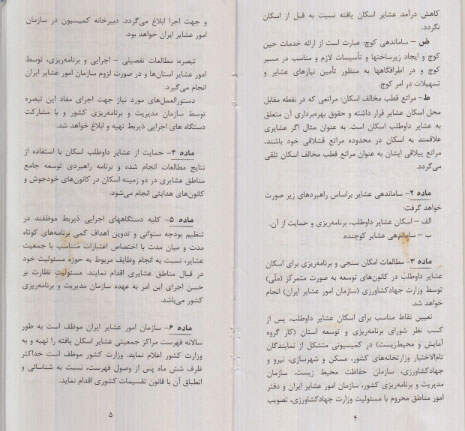 کاهش درآمد عشایر اسکان یافته نسبت به قبل از اسکان
نگردد.
ض - ساماندهی کوچ: عبارت است از ارائه خدمات حین
کوچ و ایجاد زیرساختها و تأسیسات لازم و مناسب در مسیر
کوچ و در اطراقگاهها به منظور تأمین نیازهای عشایر و
تسهیلات در امر کوچ.
ط - مراتع قطب مخالف اسکان: مراتعی که در نقطه مقابل
محل اسکان عشایر قرار داشته و حقوق بهره‌برداری آن متعلق
به عشایر داوطلب اسکان است. به عنوان مثال اگر عشایری
علاقمند به اسکان در محدوده مراتع قشلاقی خود باشند،
مراتع ییلاقی ایشان به عنوان مراتع قطب مخالف اسکان تلقی
می‌گردد.
ماده ۲- ساماندهی عشایر براساس راهبردهای زیر صورت
خواهد گرفت
الف - اسکان عشایر داوطلب، برنامه‌ریزی و حمایت از آن.
ب - ساماندهی عشایر کوچنده
ماده ۳- مطالعات امکان سنجی و برنامه‌ریزی برای اسکان
عشایر داوطلب در کانون‌های توسعه به صورت متمرکز (ملی)
توسط وزارت جهادکشاورزی (سازمان امور عشایر ایران) انجام
خواهد شد.
تعیین نقاط مناسب برای اسکان عشایر داوطلب، پس از
کسب نظر شورای برنامه‌ریزی و توسعه استان (کار گروه
آمایش و محیط‌زیست) در کمیسیونی متشکل از نمایندگان
تام‌الاختیار وزارتخانه‌های کشور، مسکن و شهرسازی، نیرو و
جهادکشاورزی، سازمان حفاظت محیط زیست، سازمان
مدیریت و برنامه‌ریزی کشور، سازمان امور عشایر ایران و دفتر
امور مناطق محروم با مسئولیت وزارت جهادکشاورزی، تصویب
۴
و جهت اجرا ابلاغ می‌گردد. دبیرخانه کمیسیون در سازمان
امور عشایر ایران خواهد بود.
تبصره: مطالعات تفصیلی - اجرایی و برنامه‌ریزی، توسط
امور عشایر استان‌ها و در صورت لزوم سازمان امور عشایر ایران
انجام می‌گیرد.
دستورالعمل‌های مورد نیاز جهت اجرای مفاد این تبصره
توسط سازمان مدیریت و برنامه‌ریزی کشور و با مشارکت
دستگاه های اجرایی ذیربط تهیه و ابلاغ خواهد شد.
ماده ۴- حمایت از عشایر داوطلب اسکان با استفاده از
نتایج مطالعات انجام شده و برنامه راهبردی توسعه جامع
مناطق عشایری در دو زمینه اسکان در کانون‌های خودجوش و
کانون‌های هدایتی انجام می‌شود.
ماده ۵- کلیه دستگاههای اجرایی ذیربط موظفند در
تنظیم بودجه سنواتی و تدوین اهداف کمی برنامه‌های کوتاه
مدت و میان مدت با اختصاص اعتبارات متناسب با جمعیت
عشایر، نسبت به انجام وظایف مربوط به حوزه مسئولیت خود
در قبال مناطق عشایری اقدام نمایند. مسئولیت نظارت بر
حسن اجرای این امر به عهده سازمان مدیریت و برنامه‌ریزی
کشور می‌باشد.
ماده ۶- سازمان امور عشایر ایران موظف است به طور
سالانه فهرست مراکز جمعیتی عشایر اسکان یافته را تهیه و به
وزارت کشور اعلام نماید. وزارت کشور موظف است حداکثر
ظرف شش ماه پس از وصول فهرست، نسبت به شناسائی و
انطباق آن با قانون تقسیمات کشوری اقدام نماید.
۵